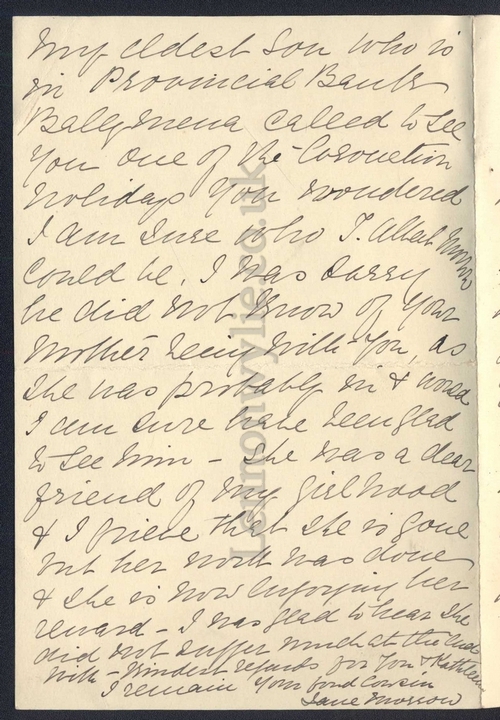 My eldest Son who is
in Provincial Bank
Ballymena called to see
You One of the Coronation
Holidays You wondered
I am sure who T. Albert Morrow
could be. I was sorry
he did not know of your
Mother being with You, as
she was probably in & would
I am sure have been glad
to see him - She was a dear
friend of my Girlhood
& I grieve that she is gone
but her work was done
& she is now enjoying her
reward - I was glad to hear she
did not suffer much at the end
With Kindest regards for You & Kathleen
I remain Your fond Cousin
Jane Morrow
Lennonwylie.co.uk